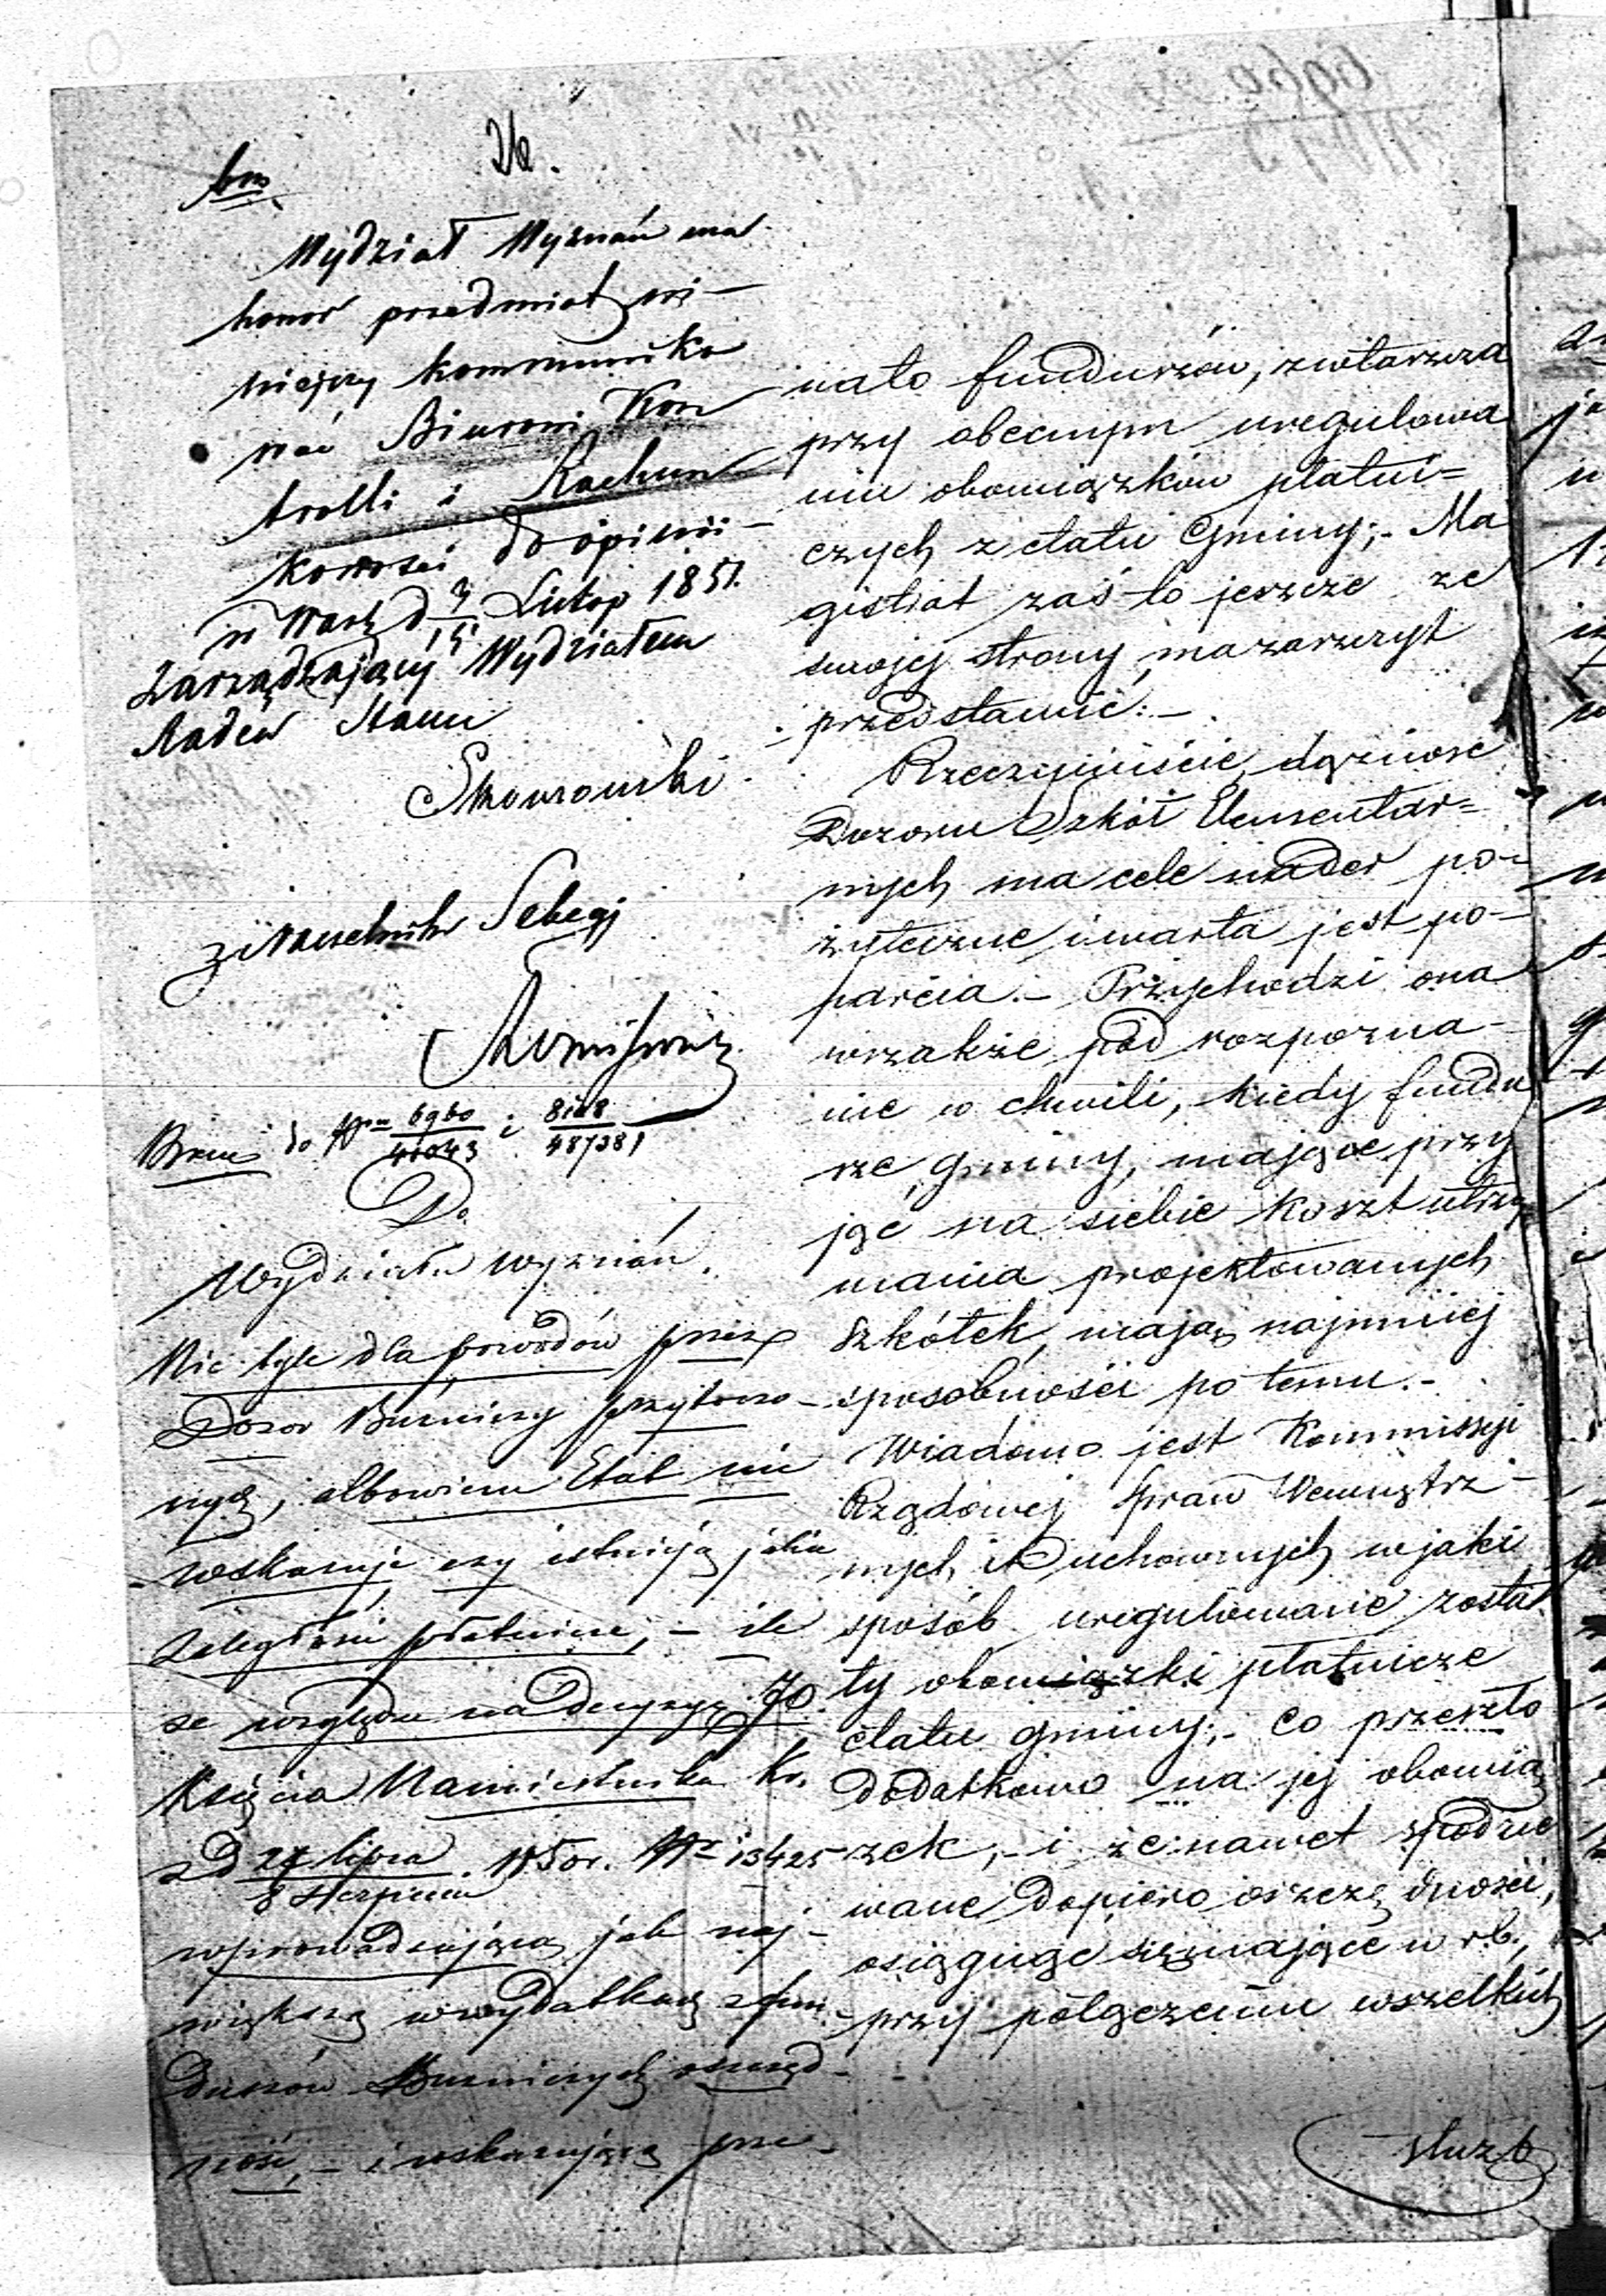 26.
Wydział Wyznań ma
honor przedmiot ni-
niejszy kommuniko
wać Biurowi Kon
trolli i Rachun
kowości do opinii -
w Warsz d 3/15 Listop 1851.
Zarządzający Wydziałem
Radca Stanu
Naczelnik Sekcyi
do Nrów 6960/41043 i
Do
Wydziału Wyznań.
Nie tyle dla powodów przez
Dozor Bużniczy przytoczo-
nych, albowiem Etat nie
wskazuje czy istnieją jakie
zaległości płatnicze, - ile
ze względu na decyzyę JO.
Księcia Namiestnika Kr.
z d 27 lipca/8 Sierpnia 1850 r. Nr 13425
wprowadzającą jak naj-
większą w wydatkach z fun-
duszów Bużniczych oszczęd-
ność, - i wskazującą prze-
nato funduszów, zwłaszcza
przy obecnym uregulowa
niu obowiązków płatni=
czych z etatu Gminy; - Ma
gistrat zaś to jeszcze ze
swojej strony, ma zaszczyt
przedstawić: -
Rzeczywiście, dążność
Dozoru Szkół Elementar=
nych ma cele nader po-
żyteczne i warta jest po-
parcia. - Przychodzi ona
wszakże pod rozpozna-
nie w chwili, kiedy fundu
sze gminy, mające przy
jąć na siebie koszt utrzy
mania projektowanych
szkółek, mają najmniej
sposobności po temu. -
Wiadomo jest Kommissyi
Rządowej Spraw Wewnętrz-
nych i Duchownych w jaki
sposób uregulowane zosta
ły obowiązki płatnicze
etatu gminy; - co przeszło
dodatkowo na jej obowią
zek, - i że nawet spodzie
wane dopiero oszczędności,
osiągnąć się mające w r.b.,
przy połączeniu wszelkich
służb